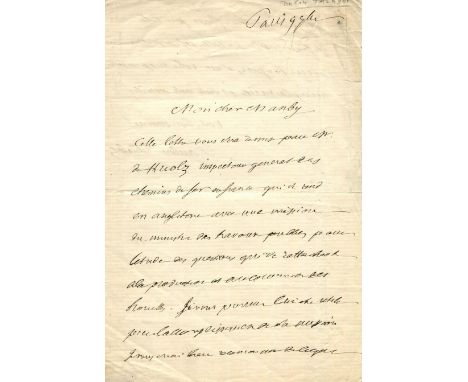 Paris 9 
Mon cher Manby
Cette lettre vous sera donnée par M.
de Ruolz inspecteur general des
chemins de fer en france qui se rend
en angleterre avec une mission
du ministre des travaux publics pour
l'etude des questions qui se rattachent
a la production et au commerce des
houilles. Si vous pouvez lui etre utile
pour l'accomplissement de sa mission
je vous serai bien reconnaissant de ce que